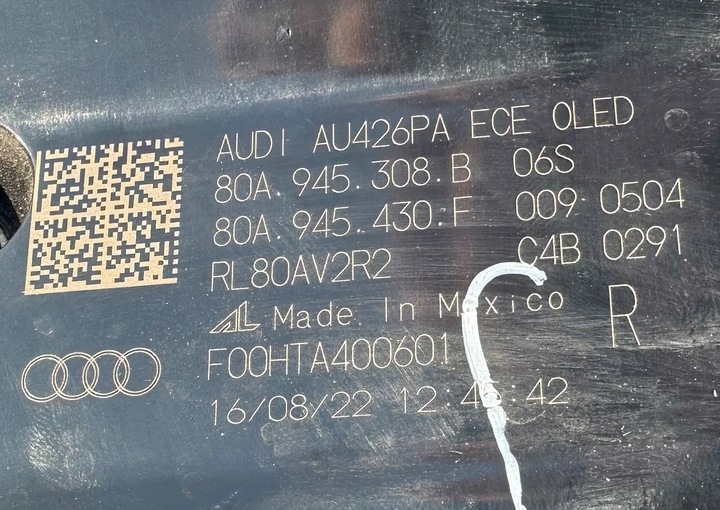 AUDI AU426PA ECE OLED
80A.945.308.B 06S
80A.945.430.F 009 0504
RL80AV2R2 C4B 0291
AL Made In Mexico R
F00HTA400601
16/08/22 12:45:42